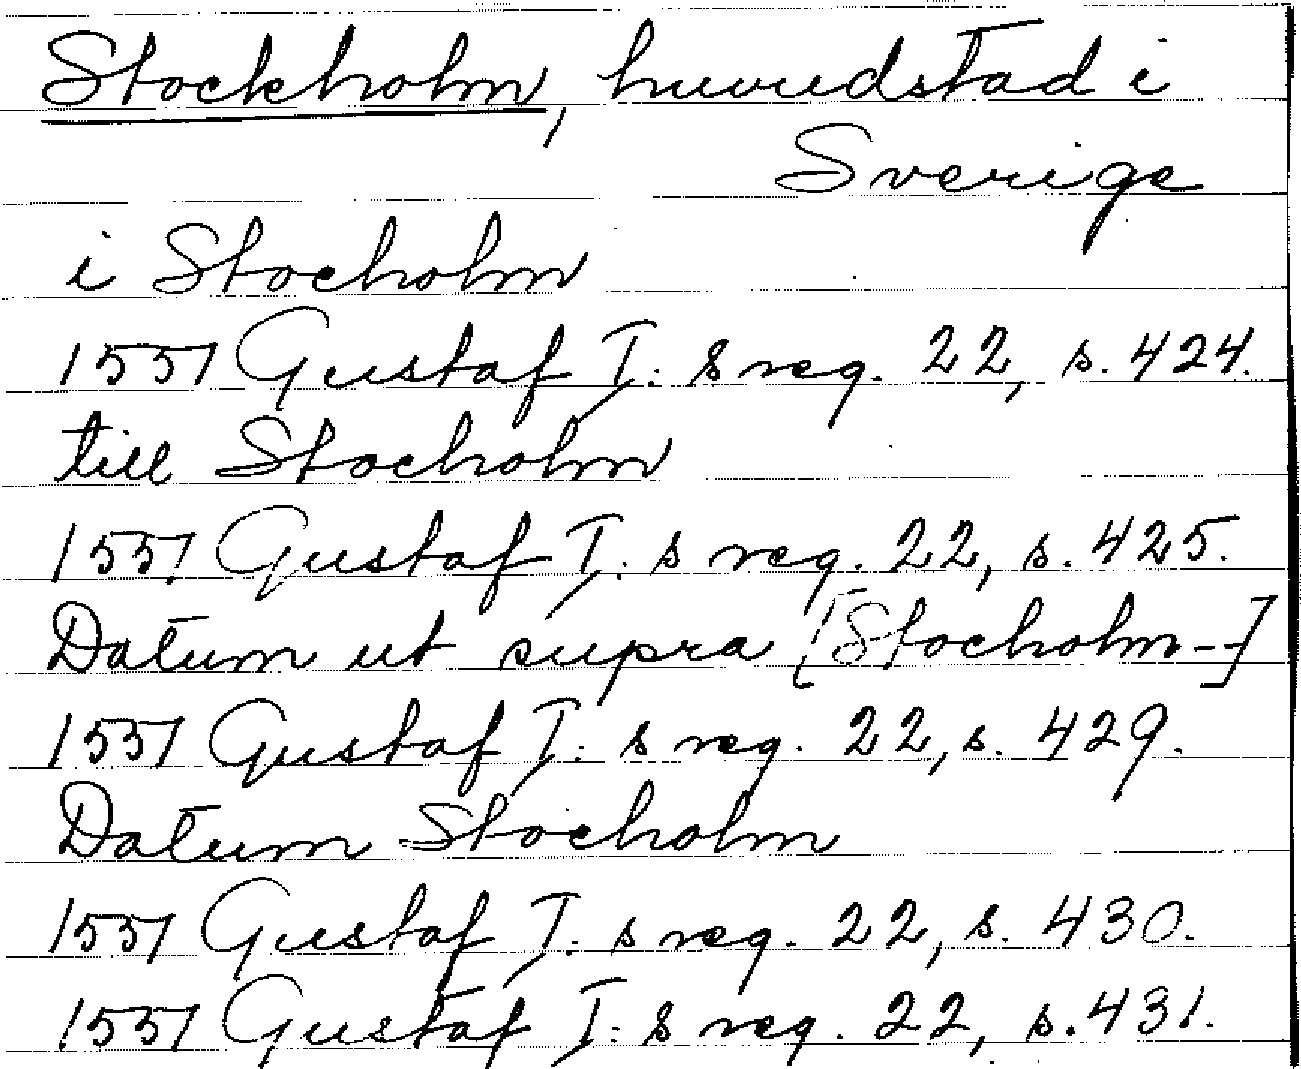 Stockholm, huvudstad i
Sverige
i Stocholm
1551 Gustaf I: s reg. 22, s. 424.
till Stocholm
1551 Gustaf I: s reg. 22, s. 425.
Datum ut supra [Stocholm--]
1551 Gustaf I: s reg. 22, s. 429.
Datum Stocholm
1551 Gustaf I: s reg. 22, s. 430.
1551 Gustaf I: s reg. 22, s. 431.